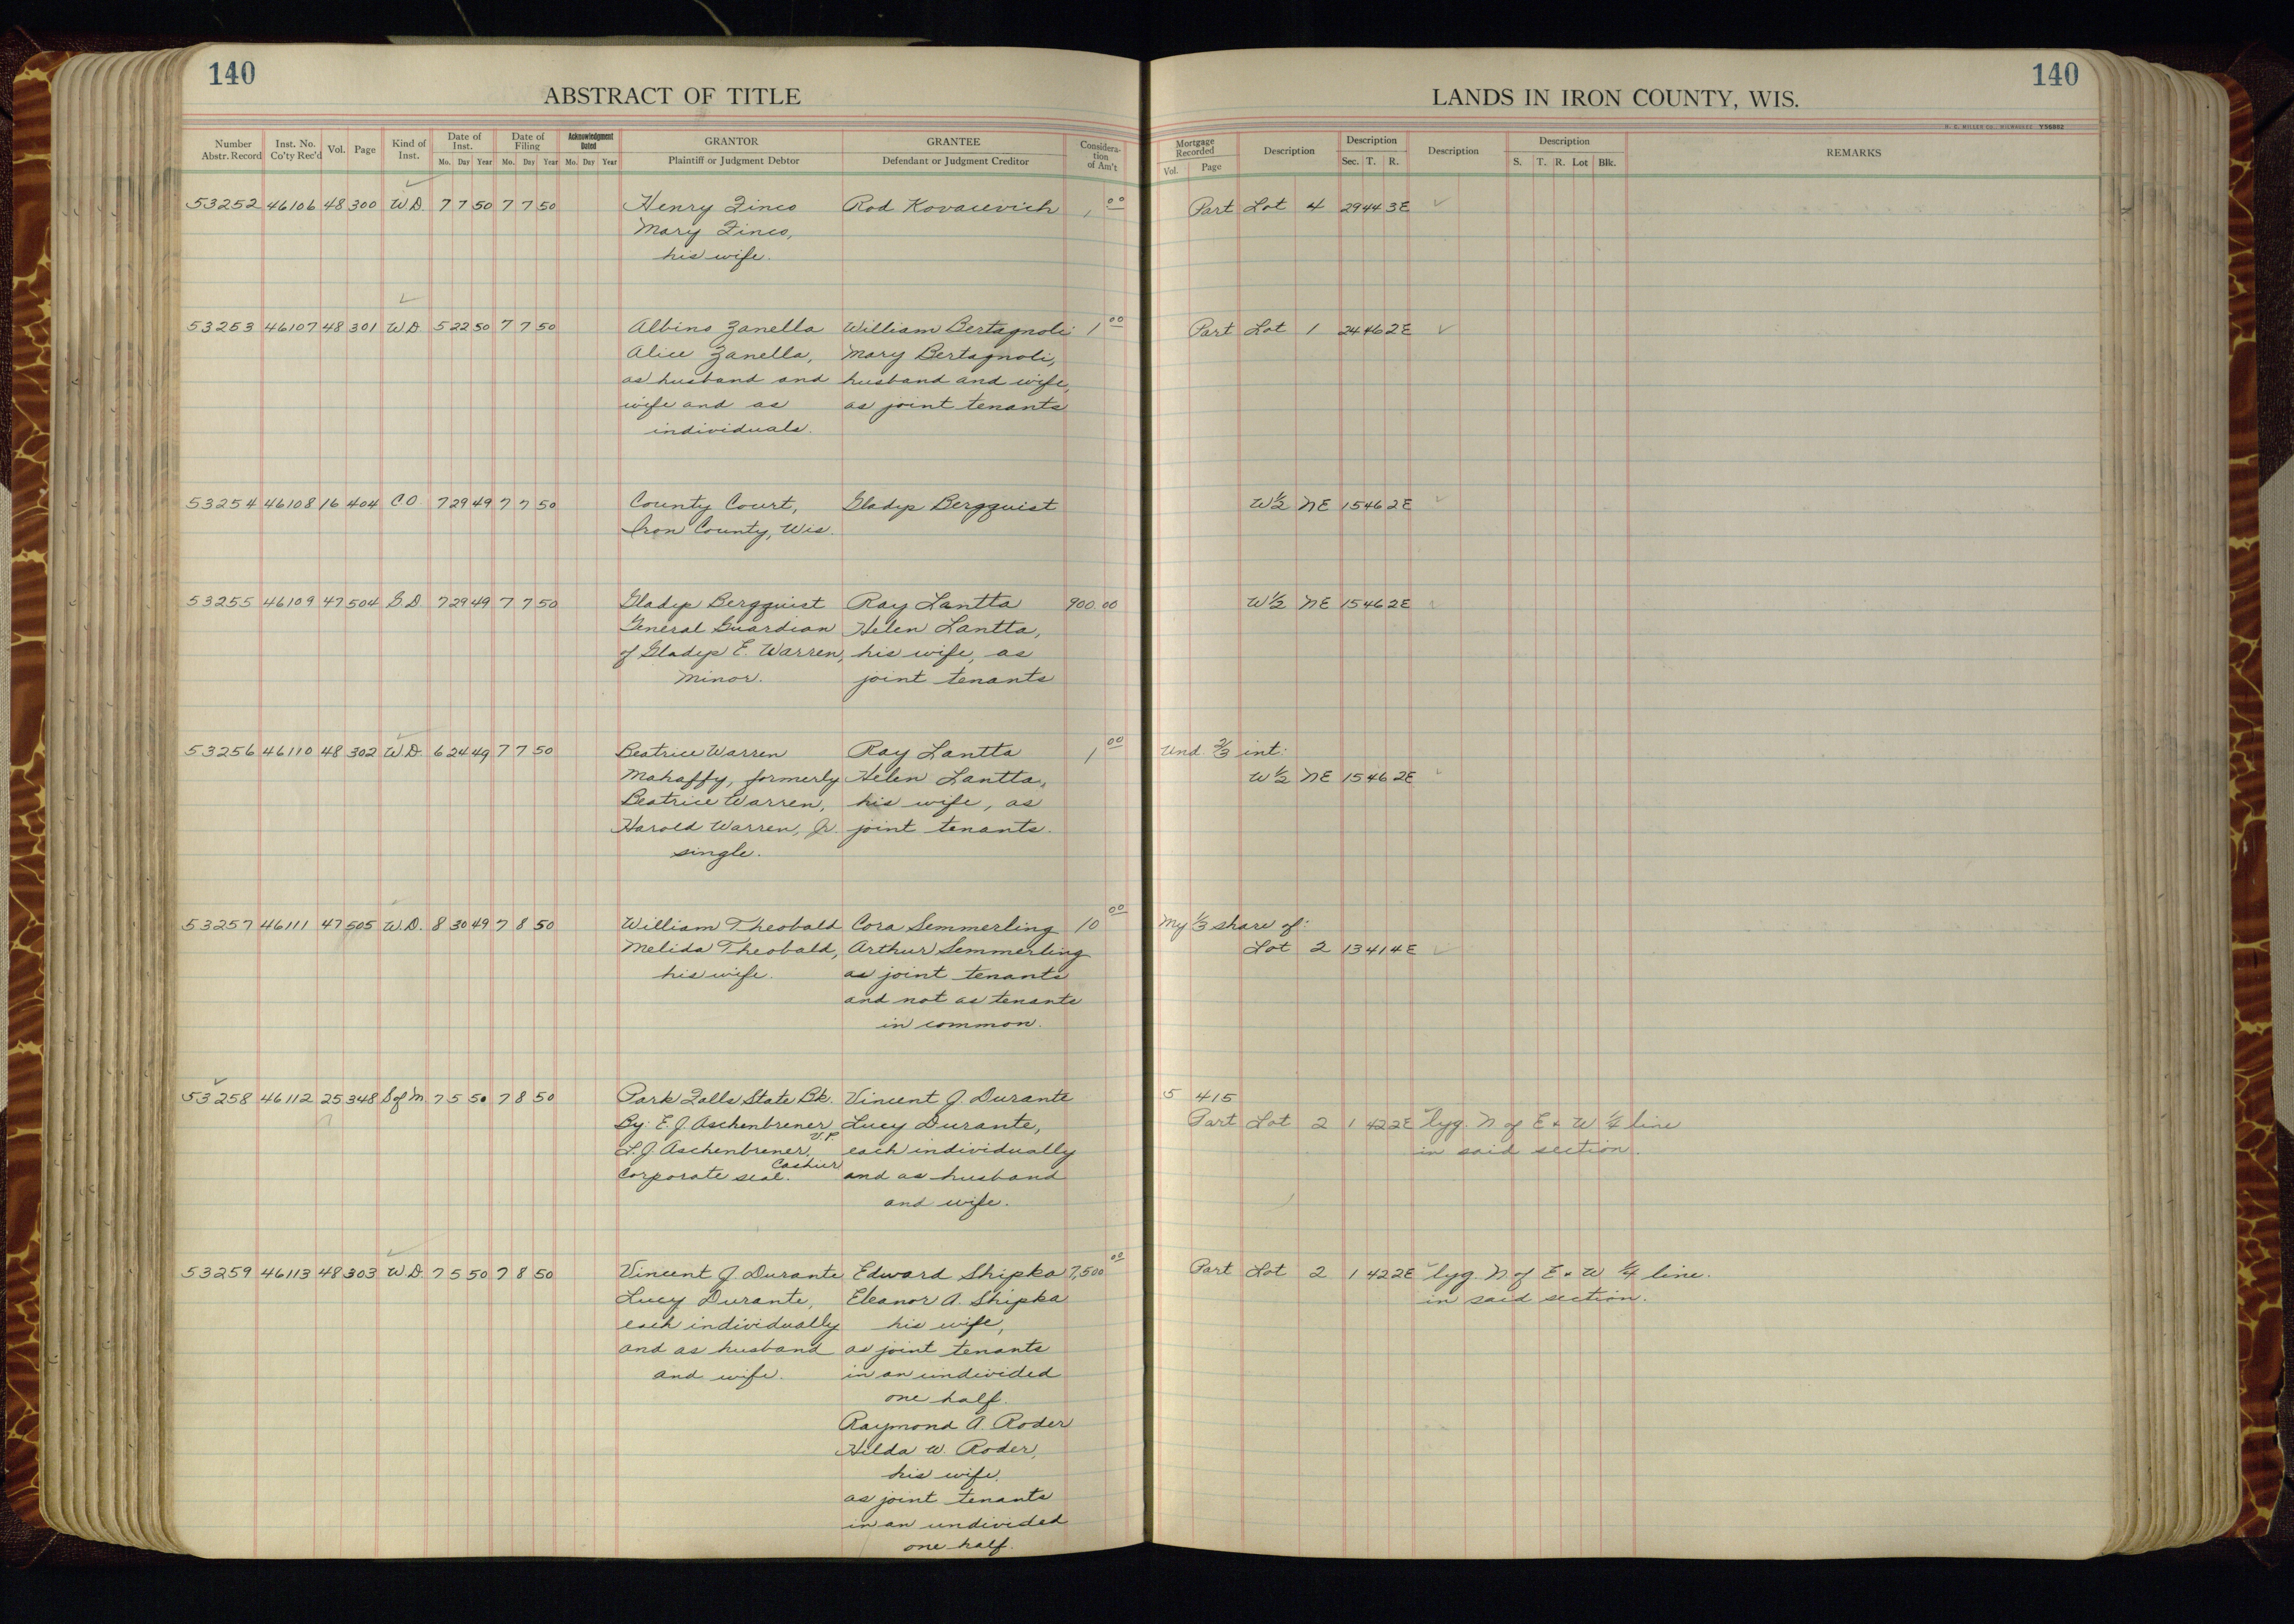 140
ABSTRACT OF TITLE
LANDS IN IRON COUNTY, WIS.
140
H. C. MILLER CO., MILWAUKEE Y56882
Number Abstr. Record | Inst. No. Co'ty Rec'd | Vol. | Page | Kind of Inst. | Date of Inst. Mo. Day Year | Date of Filing Mo. Day Year | Acknowledgment Dated Mo. Day Year | GRANTOR Plaintiff or Judgment Debtor | GRANTEE Defendant or Judgment Creditor | Considera-tion of Am't | Mortgage Recorded Vol. Page | Description | Description Sec. T. R. | Description | Description S. T. R. Lot Blk. | REMARKS
53252 46106 48 300 W D. 7 7 50 7 7 50 Henry Zinco Rod Kovacevich 1 00 Part Lot 4 29 44 3E
Mary Zinco,
his wife.
53253 46107 48 301 W D. 5 22 50 7 7 50 Albino Zanella William Bertagnoli 1 00 Part Lot 1 24 46 2E
Alice Zanella, Mary Bertagnoli,
as husband and husband and wife,
wife and as as joint tenants
individuals.
53254 46108 16 404 C O. 7 29 49 7 7 50 County Court, Gladys Bergquist W½ NE 15 46 2E
Iron County, Wis.
53255 46109 47 504 G. D. 7 29 49 7 7 50 Gladys Bergquist Ray Lantta 900.00 W½ NE 15 46 2E
General Guardian Helen Lantta,
of Gladys E. Warren, his wife, as
minor. joint tenants
53256 46110 48 302 W. D. 6 24 49 7 7 50 Beatrice Warren Ray Lantta 1 00 Und. ⅔ int:
Mahaffy, formerly Helen Lantta, W½ NE 15 46 2E
Beatrice Warren, his wife, as
Harold Warren, Jr. joint tenants.
single.
53257 46111 47 505 W. D. 8 30 49 7 8 50 William Theobald Cora Semmerling 10 00 My ⅓ share of:
Melida Theobald, Arthur Semmerling Lot 2 13 41 4E
his wife. as joint tenants
and not as tenants
in common.
53258 46112 25 348 S of M. 7 5 50 7 8 50 Park Falls State Bk. Vincent J. Durante 5 415
By: E. J. Aschenbrener, V.P. Lucy Durante, Part Lot 2 1 42 2E lyg. N of E & W ¼ line
L. J. Aschenbrener, Cashier each individually in said section.
Corporate seal. and as husband
and wife.
53259 46113 48 303 W D. 7 5 50 7 8 50 Vincent J. Durante Edward Shipka 7,500 00 Part Lot 2 1 42 2E lyg. N of E & W ¼ line.
Lucy Durante, Eleanor A. Shipka in said section.
each individually his wife,
and as husband as joint tenants
and wife. in an undivided
one half.
Raymond A. Roder
Hilda W. Roder,
his wife.
as joint tenants
in an undivided
one half.